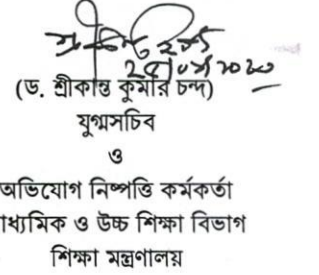 (ড. শ্রীকান্ত কুমার চন্দ)
যুগ্মসচিব
ও
অভিযোগ নিষ্পত্তি কর্মকর্তা
মাধ্যমিক ও উচ্চ শিক্ষা বিভাগ
শিক্ষা মন্ত্রণালয়